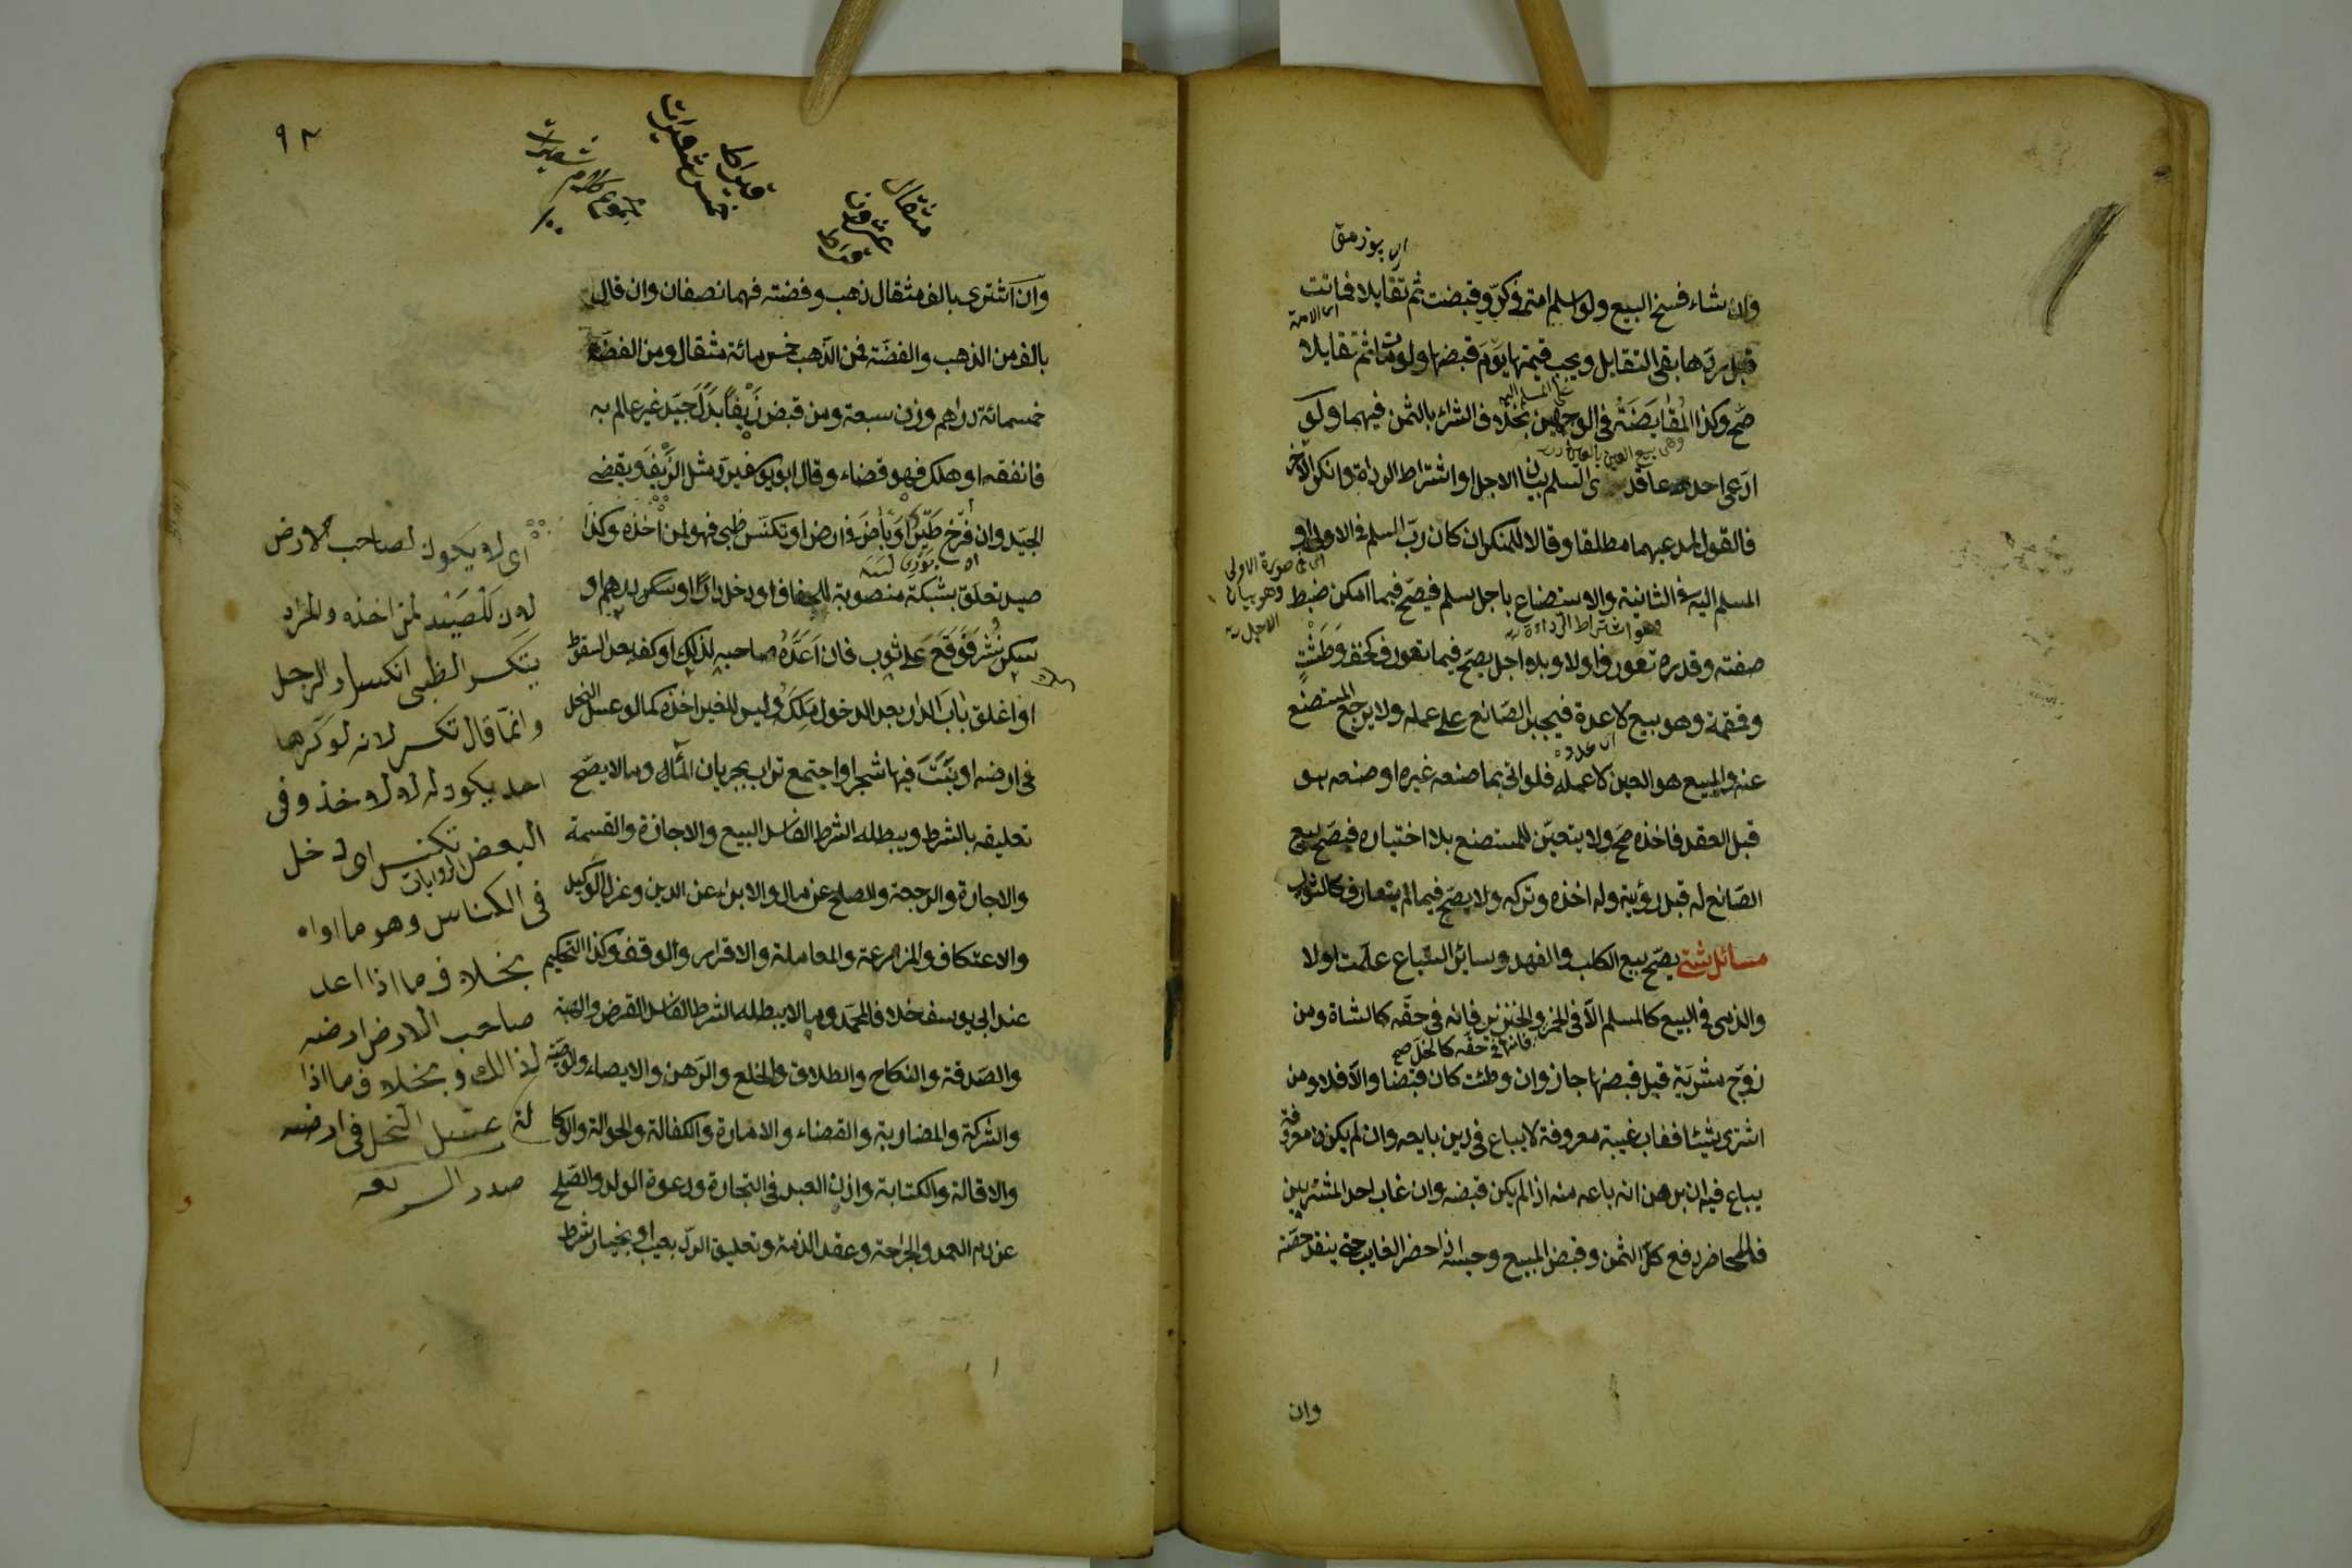 وان شاء فسخ البيع ولو اسلم امة في كرّ وقبضت ثم تقايلا فماتت
قبل ردّها بقي التقايل ويجب قيمتها يوم قبضها ولو ماتت ثم تقايلا
صحّ وكذا المُقَايَضَة في الوجهين بخلاف الشراء بالثمن فيهما ولو
ادّعى احد عاقدي السلم بيان الاجل او اشتراط الرداة وانكر الآخر
فالقول لمدعيهما مطلقا وقالا للمنكر ان كان ربّ السلم في الاولى او
المسلم اليه في الثانية والاستصناع باجل سلم فيصحّ فيما امكن ضبط
صفته وقدره تعورف اولا وبلا اجل يصحّ فيما تعورف كخف وَطَشْتٍ
وقمقمة وهو بيع لا عدة فيجبر الصّانع على عمله ولا يرجع المستصنع
عنه والمبيع هو العين لا عمله فلو اتى بما صنعه غيره او صنعه هو
قبل العقد فاخذه صحّ ولا يتعيّن للمستصنع بلا اختياره فيصحّ بيع
الصّانع له قبل رؤيته وله اخذه وتركه ولا يصحّ فيما لم يتعارف كالثوب
مسائل شتى يصحّ بيع الكلب والفهد وسائر السّباع علّمت اولا
والذمى في البيع كالمسلم الّا في الخمر والخنزير فانه في حقّه كالشاة ومن
فانها في حقه كالخل صح
زوّج مشريّة قبل قبضها جاز وان وطئت كان قبضا والّا فلا ومن
اشترى شيئا فغاب غيبة معروفة لا يباع في دين بايعه وان لم يكن معروفة
يباع فيه ان برهن انه باعه منه اذا لم يكن قبضه وان غاب احد المشتريين
فللحاضر دفع كلّ الثمن وقبض المبيع وحبسه اذا حضر الغايب حتى ينقد حقّته
على المسلم اليه
وهي بيع العين بالعين
اي في صورة الاولى
وهو بيان
الاجل
وهو اشتراط الرداءة
اى الامة
وان
٩٢
مثقال
عشرون
قيراط
قيراط
خمس شعيرات
وان اشترى بالف مثقال ذهب وفضته فهما نصفان وان قال
بالف من الذهب والفضّة فمن الذّهب خمس مائة مثقال ومن الفضّة
خمسمائة دراهم وزن سبعة ومن قبض زَيْفًا بَدَلَ جَيّد غير عالم به
فانفقه او هلك فهو قضاء وقال ابو يوسف يردّ مثل الزَّيْف ويقضى
الجيّد وان فرّخ طَيْرٌ او بَاضَ في ارض او تكنّس ظبى فهو لمن اخذه وكذا
صيد تعلّق بشبكة منصوبة للجفاف او دخل دارًا او سكر او درهم او
سكر نُثِرَ فَوَقَعَ على ثوب فان اَعَدَّهُ صاحبه لذلك او كفه بعد السقوط
او اغلق باب الدار بعد الدخول مَلَكَهُ وليس للغير اخذه كما لو عسل النحل
في ارضه او نَبَتَ فيها شجر او اجتمع تراب بجريان الماء وما لا يصّح
تعليقه بالشرط ويبطله الشرط الفاسد البيع والاجازة والقسمة
والاجارة والرجعة والصلح عن مال والابراء عن الدين وعزل الوكيل
والاعتكاف والمزارعة والمعاملة والاقرار والوقف وكذا التحكيم
عند ابي يوسف خلافا لمحمّد وما لا يبطله الشرط الفاسد القرض والهبة
والصّدقة والنكاح والطلاق والخلع والرّهن والايصاء والوصيّة
والشركة والمضاربة والقضاء والامارة والكفالة والحوالة والوكالة
والاقالة والكتابة واذن العبد في التجارة ودعوة الولد والصّلح
عن دم العمد والجراحة وعقد الذمة وتعليق الردّ بعيب او بخيار شرط
اى لا يكون لصاحب الارض
لان الصيد لمن اخذه والمراد
بتكسر الظبى انكسار الرجل
وانّما قال تكسر لانه لو كسرها
احد يكون له لا للاخذ وفى
البعض الروايات تكنس اى دخل
فى الكناس وهو مأواه
بخلاف ما اذا اعد
صاحب الارض ارضه
لذالك وبخلاف ما اذا
عسل النحل فى ارضه
صدر الشريعه